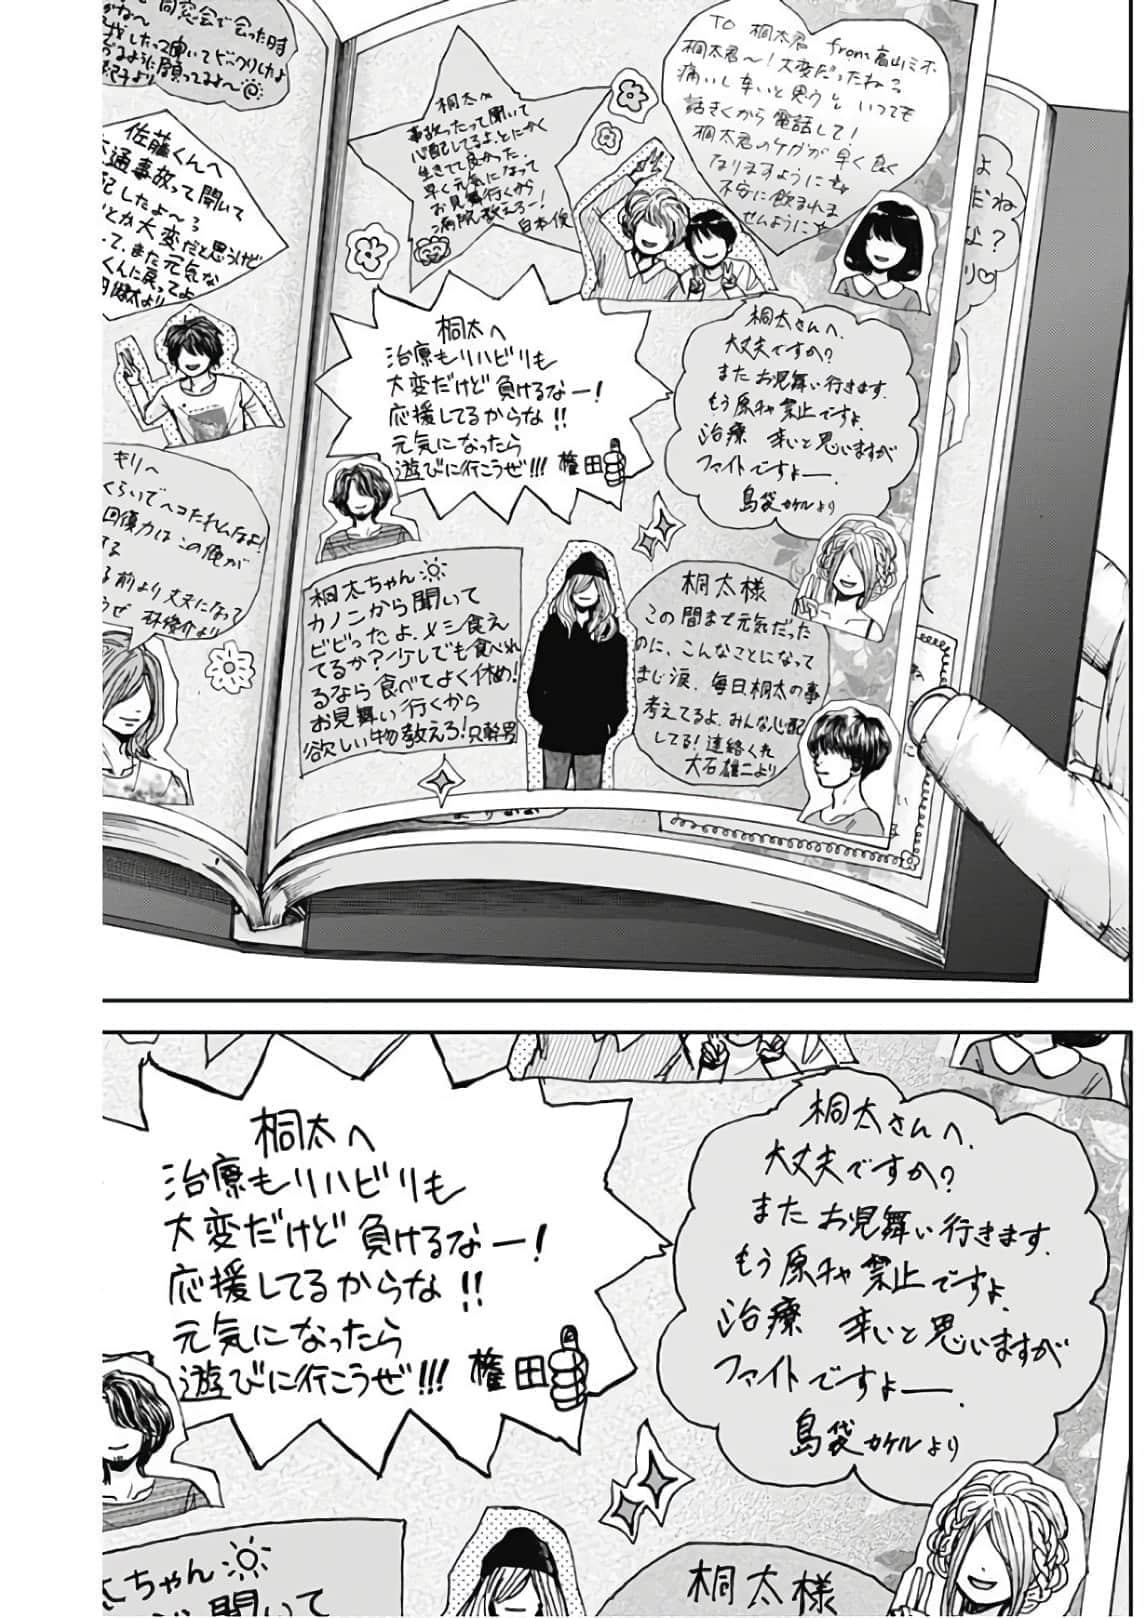 同窓会で会った時
したって聞いてビックリしたよ
るように願ってるよ〜
佐藤くんへ
通事故って聞いて
配したよ〜
とか大変だと思うけど
て、また元気な
くんに戻ってよ
より
きりへ
くらいでヘコたれんなよ!
回復力はこの俺が
する
る前より丈夫になって
うぜ 林俊介より
桐太へ
事故ったって聞いて
心配してるよ、とにかく
生きてて良かった。
早く元気になって
お見舞行くから
病院教えろー!
日本俊
TO 桐太君 from 高山ミホ
桐太君〜!大変だったね?
痛いし辛いと思うし いつでも
話きくから電話して!
桐太君のケガが早く良く
なりますように
不安に飲まれま
せんように
桐太へ
治療もリハビリも
大変だけど負けるなー!
応援してるからな!!
元気になったら
遊びに行こうぜ!!! 権田
桐太さんへ、
大丈夫ですか?
またお見舞い行きます。
もう原チャ禁止ですよ、
治療 辛いと思いますが
ファイトですよー、
島袋カケルより
桐太ちゃん
カノンから聞いて
ビビったよ、メシ食え
てるか?少しでも食べれ
るなら食べてよく休め!
お見舞い行くから
欲しい物教えろ!只幹男
桐太様
この間まで元気だった
のに、こんなことになって
まじ涙、毎日桐太の事
考えてるよ、みんな心配
してる!連絡くれ
大石雄二より
よ
だね
な?
り♡
桐太へ
治療もリハビリも
大変だけど負けるなー!
応援してるからな!!
元気になったら
遊びに行こうぜ!!! 権田
桐太さんへ、
大丈夫ですか?
またお見舞い行きます。
もう原チャ禁止ですよ、
治療 辛いと思いますが
ファイトですよー、
島袋カケルより
太ちゃん
聞いて
桐太様